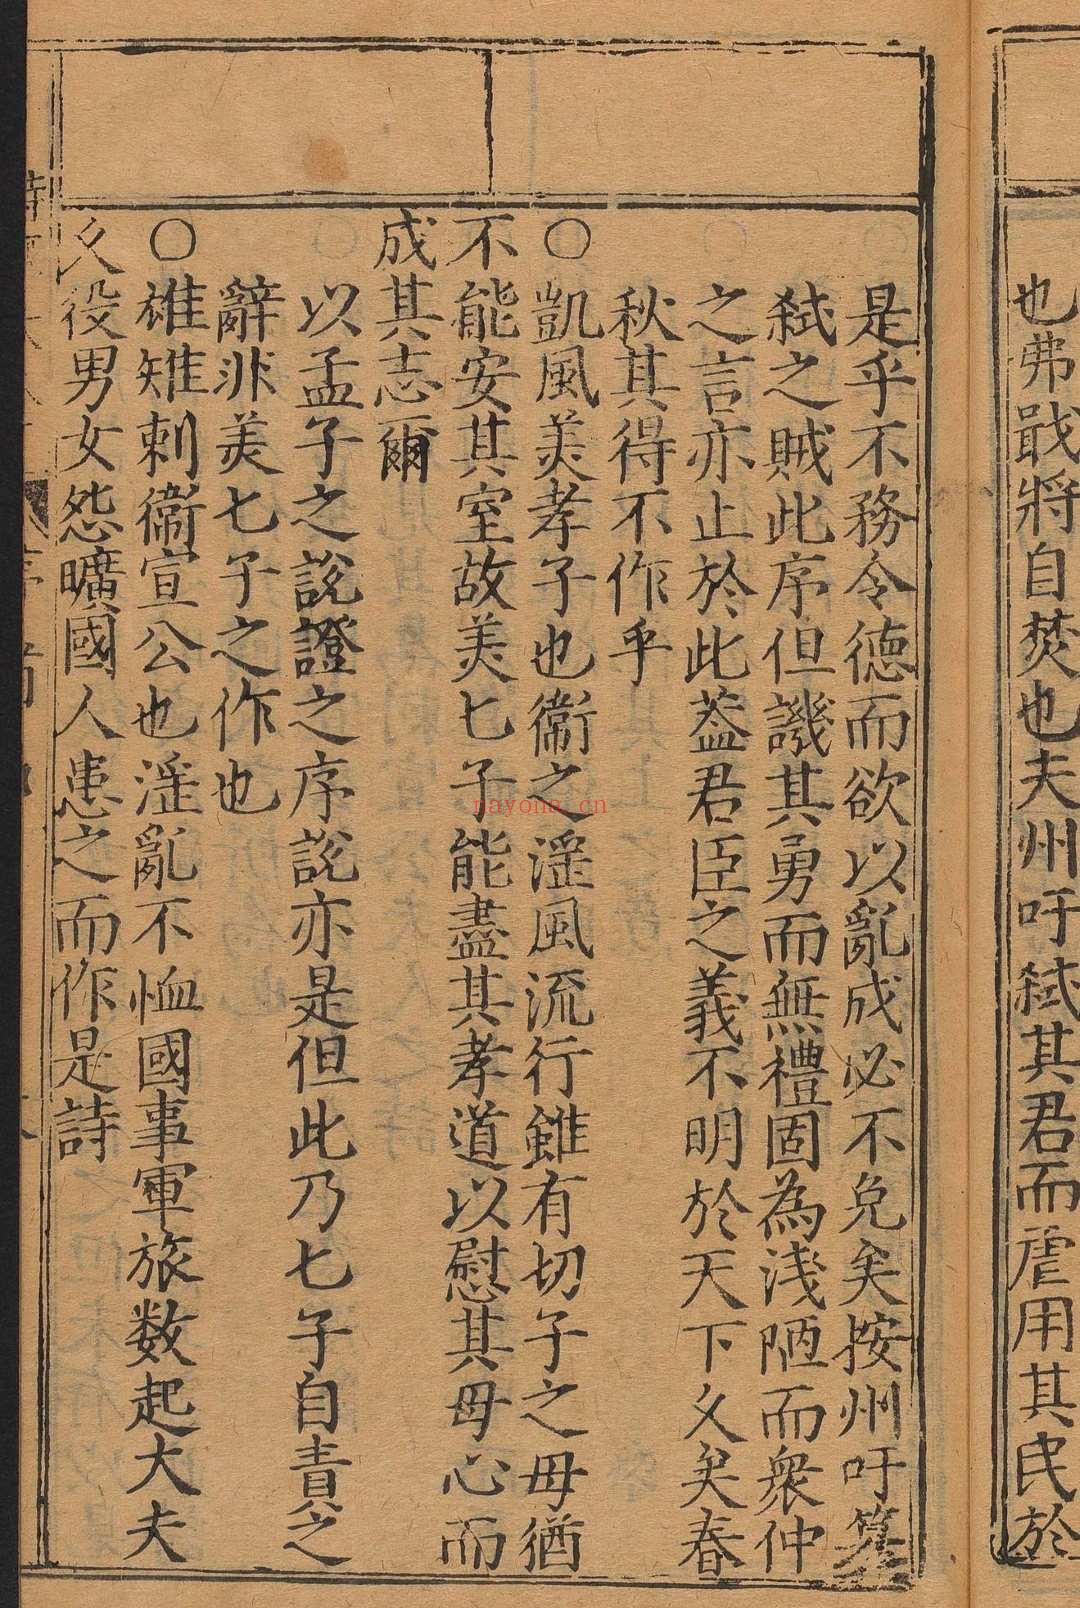 也弗戢將自焚也夫州吁弑其君而虐用其民於
是乎不務令德而欲以亂成必不免矣按州吁篡
弑之賊此序但譏其勇而無禮固為淺陋而衆仲
之言亦止於此葢君臣之義不明於天下久矣春
秋其得不作乎
○凱風美孝子也衞之淫風流行雖有七子之母猶
不能安其室故美七子能盡其孝道以慰其母心而
成其志爾
以孟子之說證之序說亦是但此乃七子自責之
辭非美七子之作也
○雄雉刺衞宣公也淫亂不恤國事軍旅數起大夫
久役男女怨曠國人患之而作是詩
nayona.cn